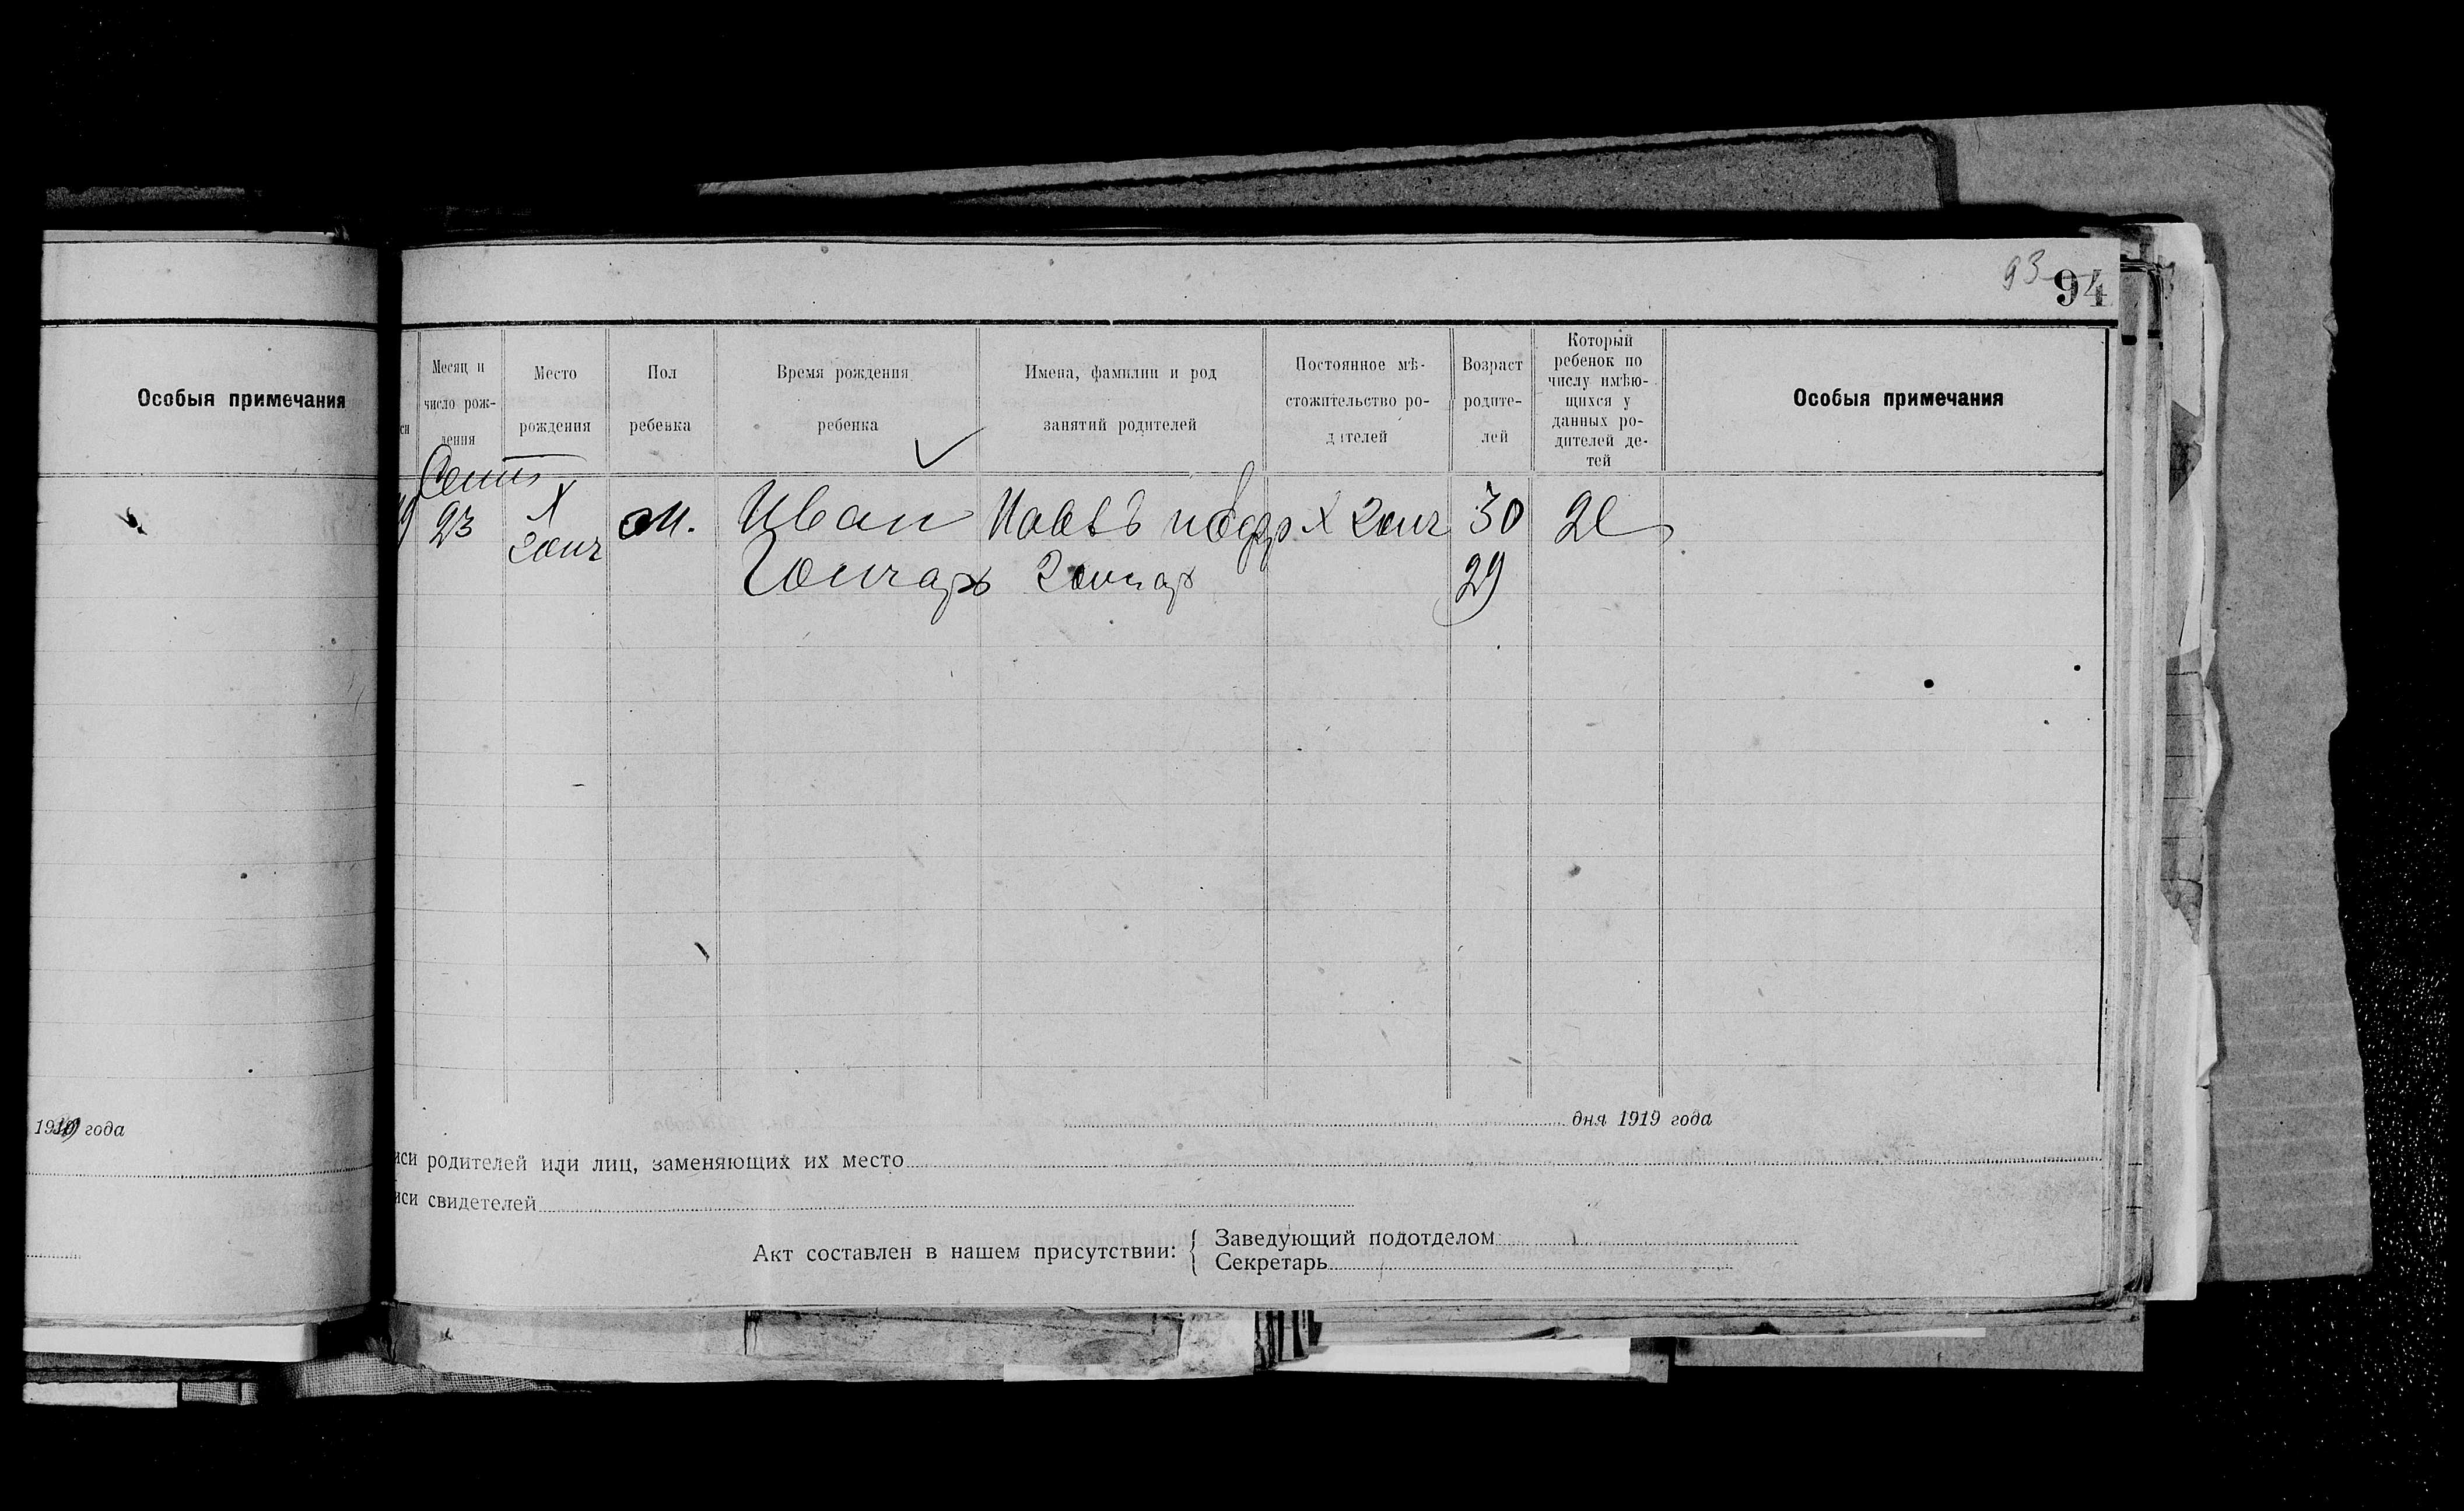 93 94
Особыя примечания
Месяц и число рождения
Место рождения
Пол ребенка
Время рождения ребенка
Имена, фамилии и род занятий родителей
Постоянное мѣстожительство родителей
Возраст родителей
Который ребенок по числу имѣющихся у данных родителей детей
Особыя примечания
Сент
23 Х м. Иван Х Гонч 30 2й
Гонч Гончар Гончар 29
19 года
дня 1919 года
иси родителей или лиц, заменяющих их место
иси свидетелей
Акт составлен в нашем присутствии: { Заведующий подотделом
Секретарь